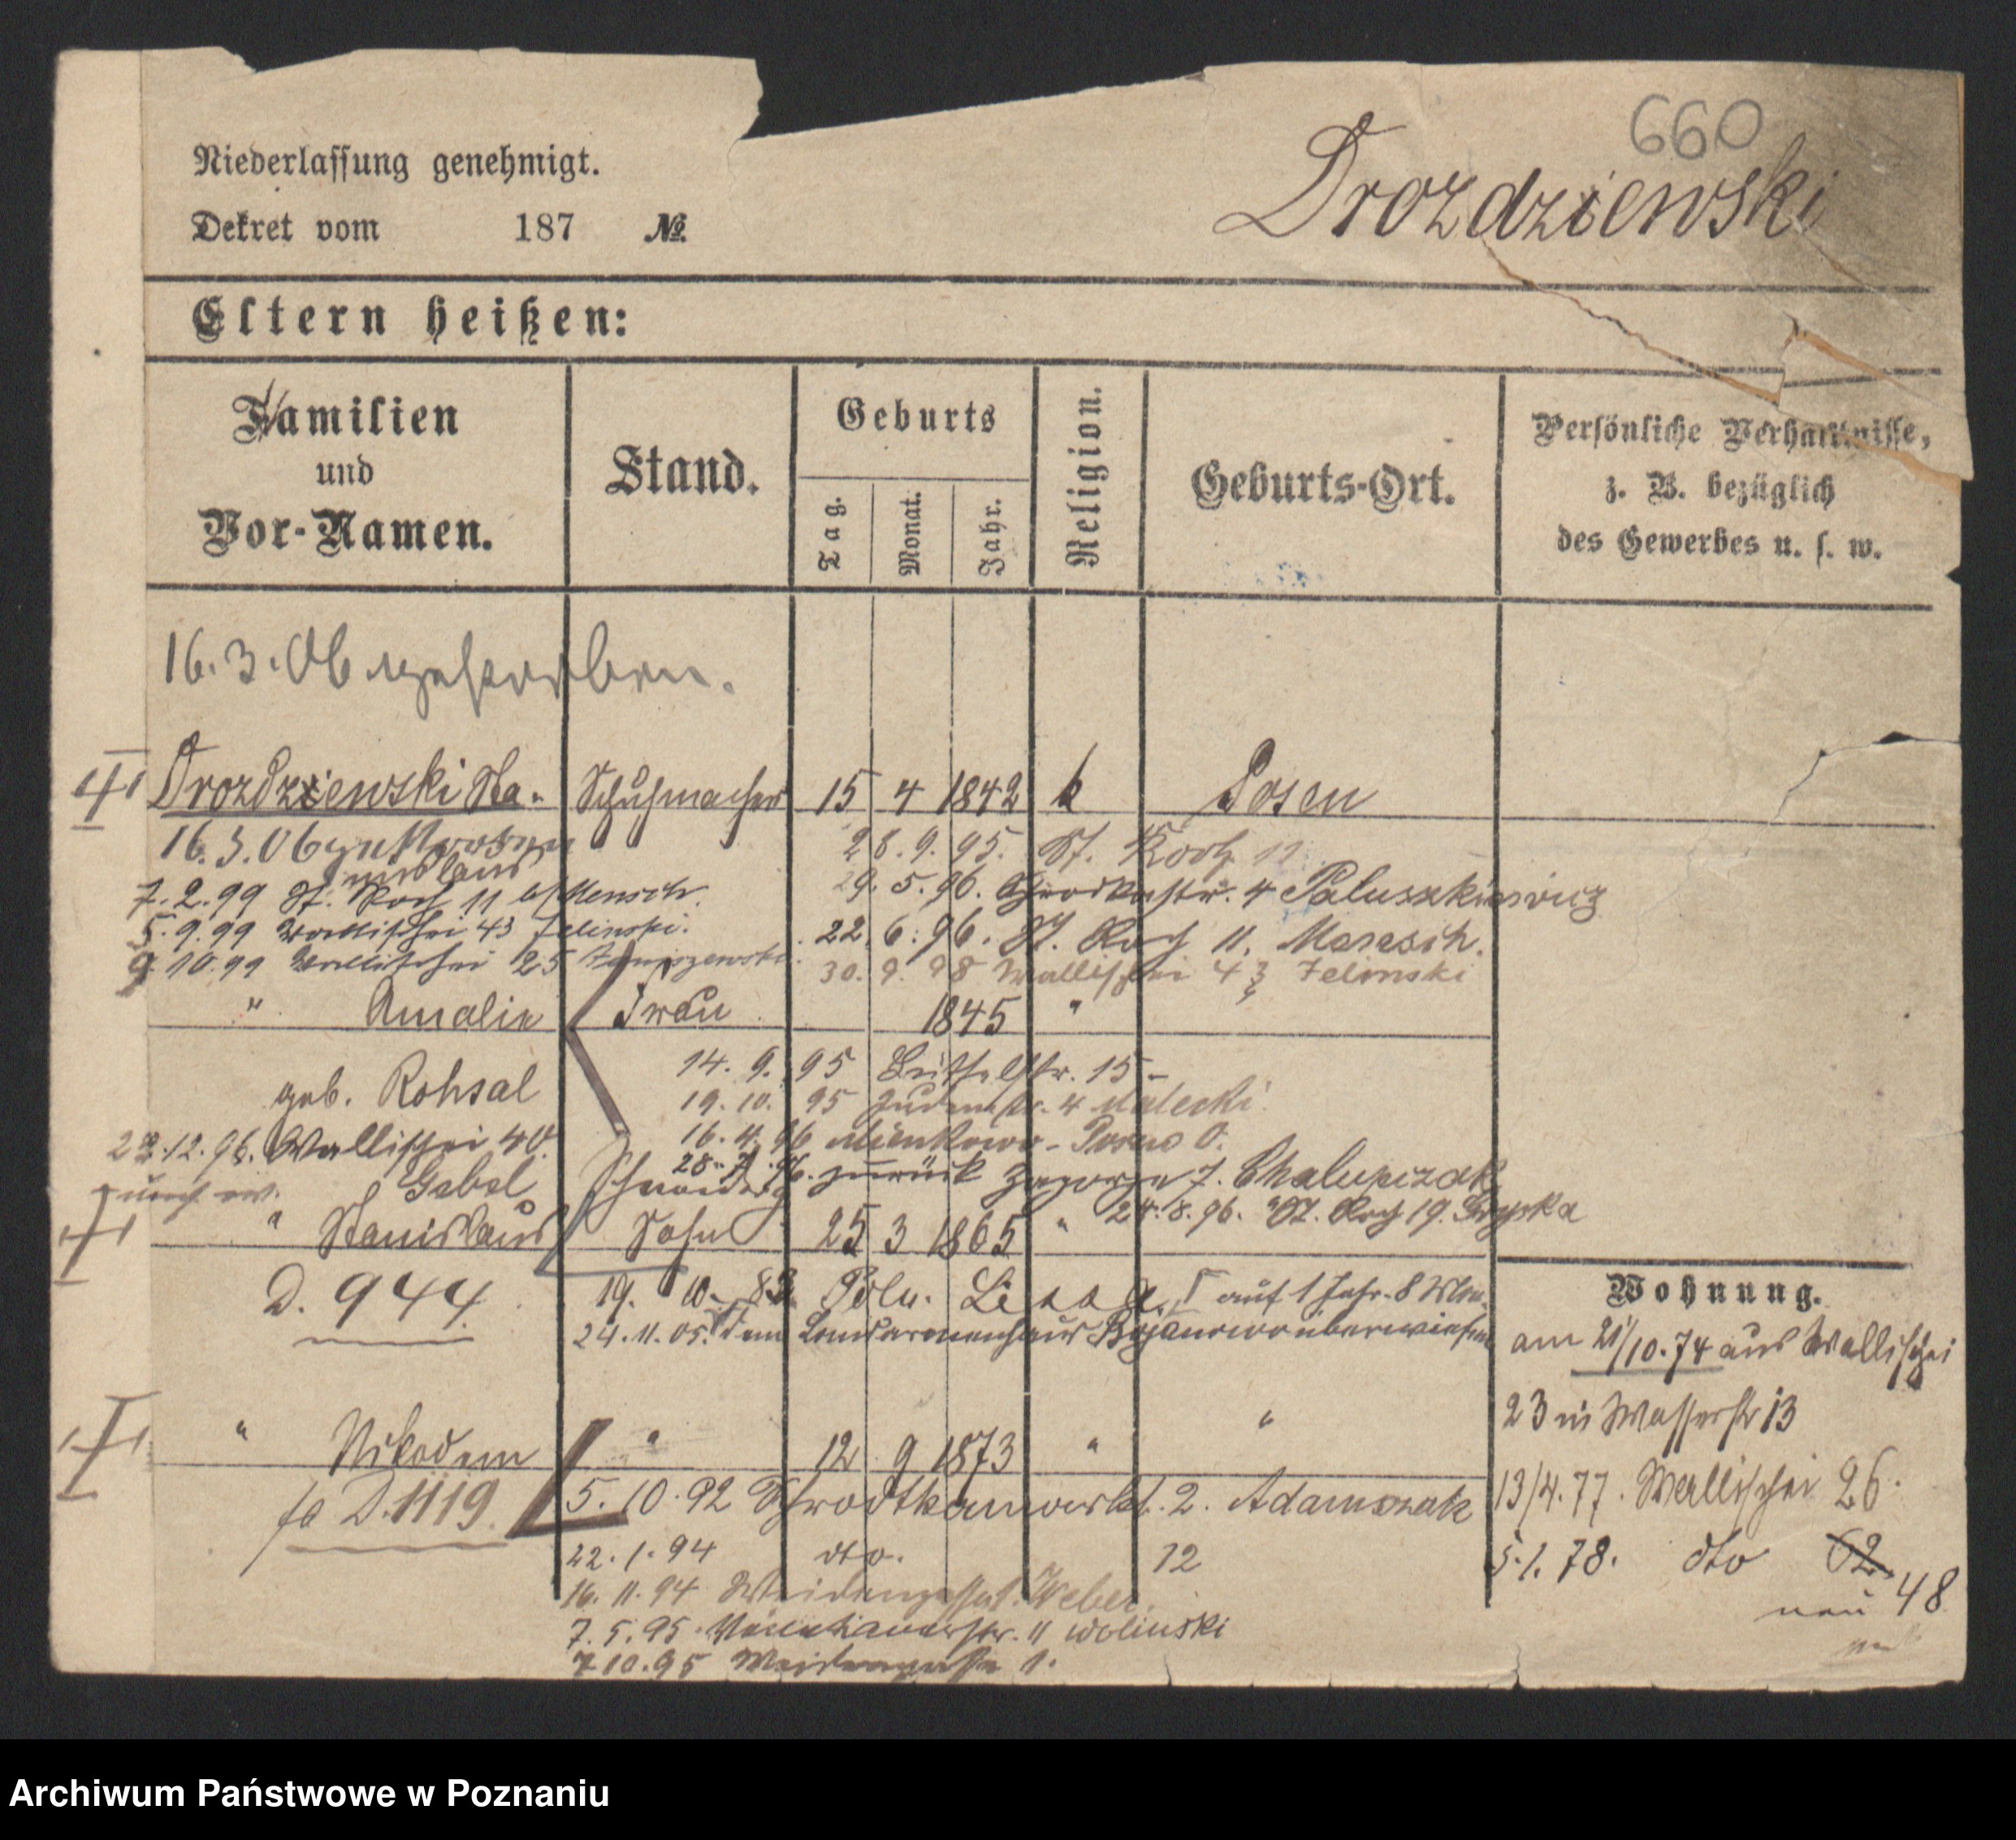 660
Drozdziewski
Niederlassung genehmigt.
Dekret vom 187 №
Eltern heißen:
Familien und Vor-Namen.
Stand.
Geburts
Tag.
Monat.
Jahr.
Religion.
Geburts-Ort.
Persönliche Verhältnisse, z. B. bezüglich des Gewerbes u. s. w.
16.3.06 gestorben.
Drozdziewski Schuhmacher 15 4 1842 k Posen
16.3.06
28.9.95. St. Roch 11
29.5.96. 4 Paluszkiewicz
7.2.99 St. Roch 11 b/Mensch.
22.6.96. St. Roch 11.
5.9.99 Wallischei 43 Jelinski.
30.9.98 Wallischei 43 Jelinski
9.10.99 Wallischei 25
" Amalie Frau 1845 "
geb. Rohsal
14.9.95 15
19.10.95 Judenstr. 4 Malecki
16.4.96
28.7.96. zurück Zagorze 7.
22.12.96. Wallischei 40.
Gabel
24.8.96. St. Roch 19.
" Stanislaus Sohn 25 3 1865 "
D. 944.
19. 10. 83 Poln. Lissa auf 1 Jahr. 8
24.11.05. dem Landarmenhaus Bojanowo überwiesen
Wohnung.
am 21/10.74 aus Wallischei
23 in Wasserstr 13
13/4.77. Wallischei 26.
5.1.78. dto 62
neu 48
" Nikodem " 12 9 1873 " "
D. 1119.
5.10.92 2. Adamczak
22.1.94 dto. 12
16.11.94 Weidengasse 1. Weber.
7.5.95. 11 Wolinski
7.10.95 Weidengasse 1.
Archiwum Państwowe w Poznaniu